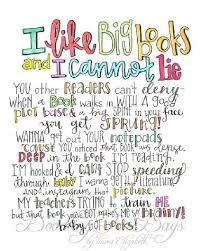 I like Big books
and I cannot lie
You other Readers can't deny
when a Book walks in with a good
plot base and a big spine in your face
you get SPRUNG!
Wanna get out your notepads
'cause you notice that book was
Deep in the book I'm reading,
I'm hooked & can't stop speeding
through baby I want to get the literature
and picture instagram.
My teachers trying to train me
but that book makes me so brainy!
baby got books!
by Laura Elizabeth